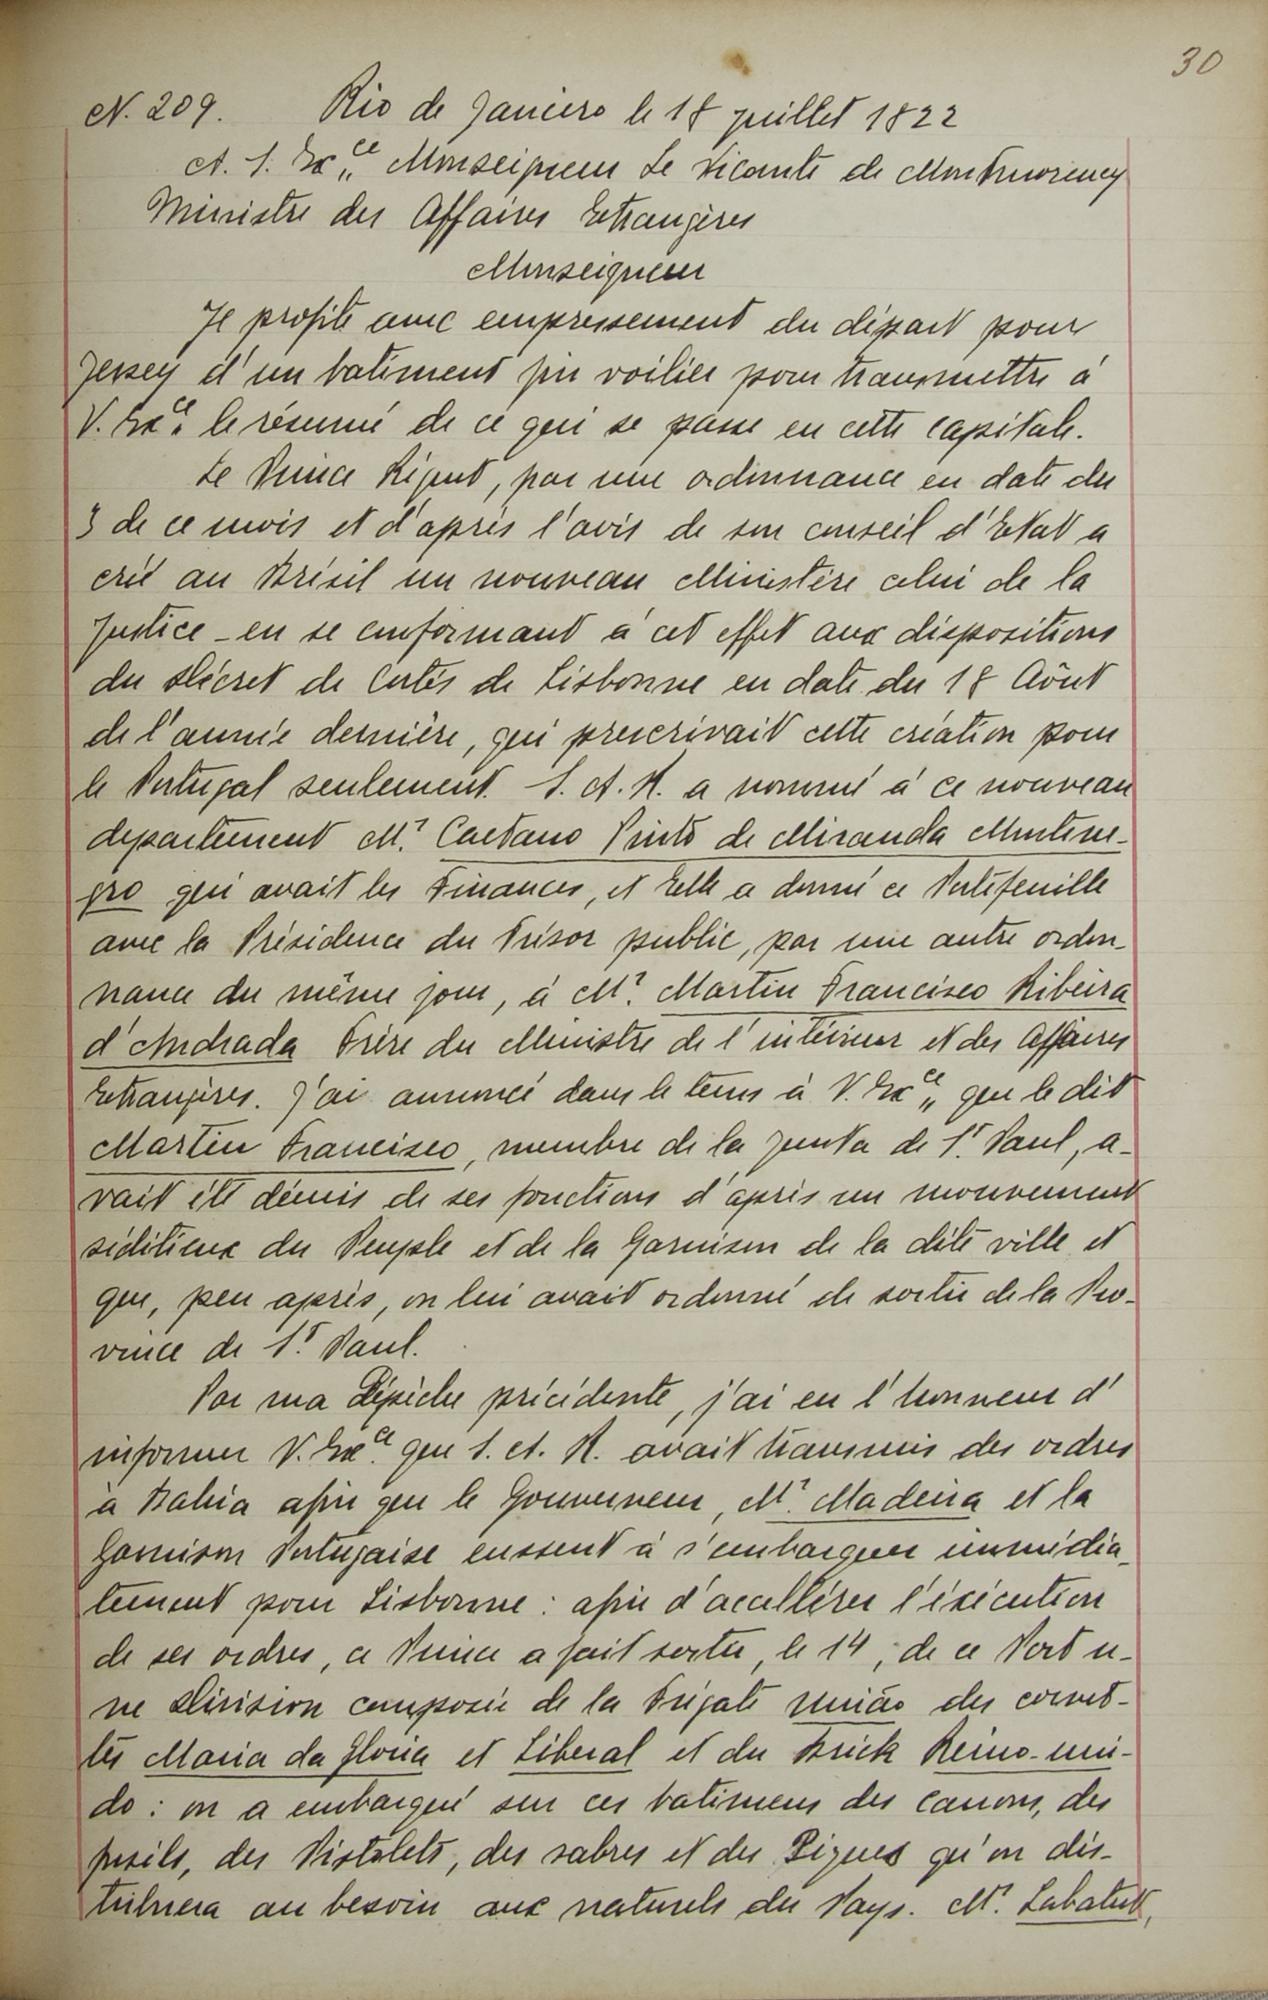 30
N. 209. Rio de Janeiro le 18 juillet 1822
A. S. Ex„ce Monseigneur Le Vicomte de Montmorency
Ministre des Affaires Etrangères
Monseigneur
Je profite avec empressement du départ pour
Jersey d'un batiment fin voilier pour transmettre à
V. Exce. le résumé de ce qui se passe en cette capitale.
Le Prince Régent, par une ordonnance en date du
3 de ce mois et d'après l'avis de son conseil d'Etat a
créé au Brésil un nouveau Ministère celui de la
Justice - en se conformant à cet effet aux dispositions
du Décret de Cortès de Lisbonne en date du 18 Août
de l'année dernière, qui prescrivait cette création pour
le Portugal seulement. S. A. R. a nommé à ce nouveau
departement Mr. Caetano Pinto de Miranda Montene-
gro qui avait les Finances, et Elle a donné ce Portefeuille
avec la Présidence du Trésor public, par une autre ordon-
nance du même jour, à Mr. Martin Francisco Ribeira
d'Andrada Frère du Ministre de l'intérieur et des Affaires
Etrangères. J'ai annoncé dans le tems à V. Ex„ce que le dit
Martin Francisco, membre de la Junta de St. Paul, a-
vait été démis de ses fonctions d'après un mouvement
séditieux du Peuple et de la Garnison de la dite ville et
que, peu après, on lui avait ordonné de sortir de la Pro-
vince de St. Paul.
Par ma Dépêche précédente, j'ai eu l'honneur d'
informer V. Exce. que S. A. R. avait transmis des ordres
à Bahia afin que le Gouverneur, Mr. Madeira et la
Garnison Portugaise eussent à s'embarquer immédia-
tement pour Lisbonne : afin d'accellérer l'éxécution
de ses ordres, ce Prince a fait sortir, le 14, de ce Port u-
ne Division composée de la Frégate União des corvet-
tes Maria da Gloria et Liberal et du Brick Reino-uni-
do : on a embarqué sur ces batimens des canons, des
fusils, des Pistolets, des sabres et des Piques qu'on dis-
tribuera au besoin aux naturels du Pays. Mr. Labatut,